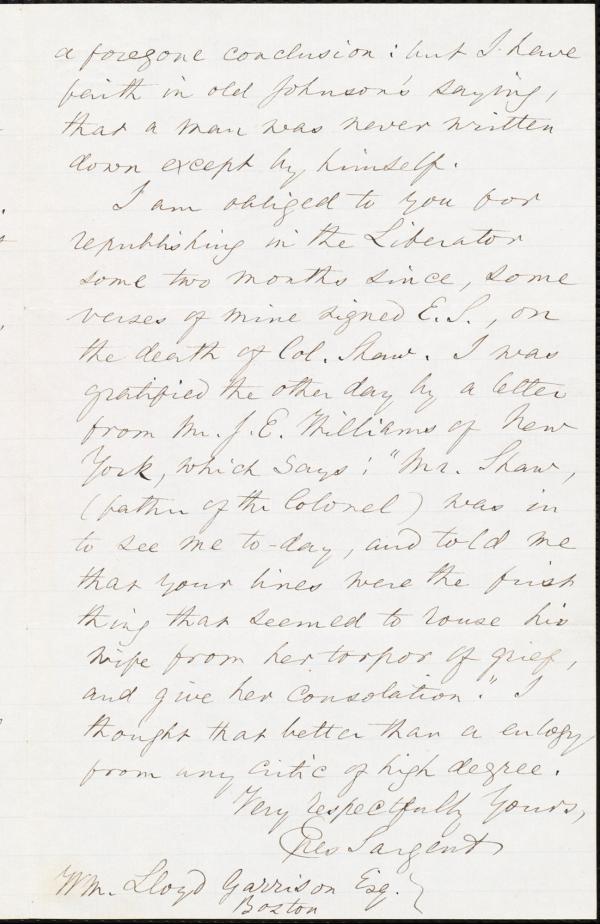 a foregone conclusion: but I have
faith in old Johnson's saying,
that a man was never written
down except by himself.
I am obliged to you for
republishing in the Liberator
some two months since, some
verses of mine signed E. S., on
the death of Col. Shaw. I was
gratified the other day by a letter
from Mr. J. E. Williams of New
York, which says: "Mr. Shaw,
(father of the Colonel) was in
to see me to-day, and told me
that your lines were the first
thing that seemed to rouse his
wife from her torpor of grief,
and give her consolation." I
thought that better than a eulogy
from any critic of high degree.
Very respectfully Yours,
Epes Sargent
Wm. Lloyd Garrison Esq.
Boston